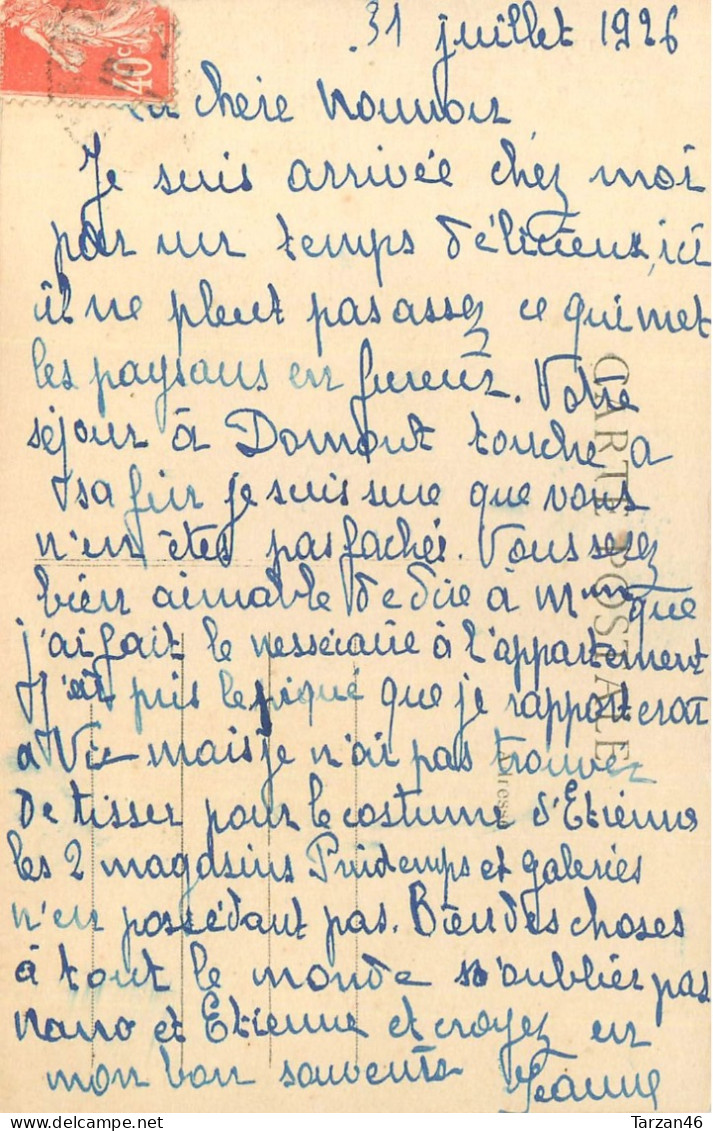 31 juillet 1926
chere Nounou
Je suis arrivée chez moi
par un temps délicieux, ici
il ne pleut pas assez ce qui met
les paysans en fureur. Votre
séjour à Domont touche a
sa fin je suis sure que vous
n'en êtes pas fachés. Vous serez
bien aimable de dire à Mme que
j'ai fait le nessecaire à l'appartement
J'ai pris le piqué que je rapporterai
a Vic mais je n'ai pas trouver
de tisser pour le costume d'Etienne
les 2 magasins Printemps et galeries
n'en possédant pas. Bien des choses
à tout le monde n'oublier pas
Nano et Etienne et croyez en
mon bon souvenir Jeanne
40c
CARTE POSTALE
Adresse
Tarzan46